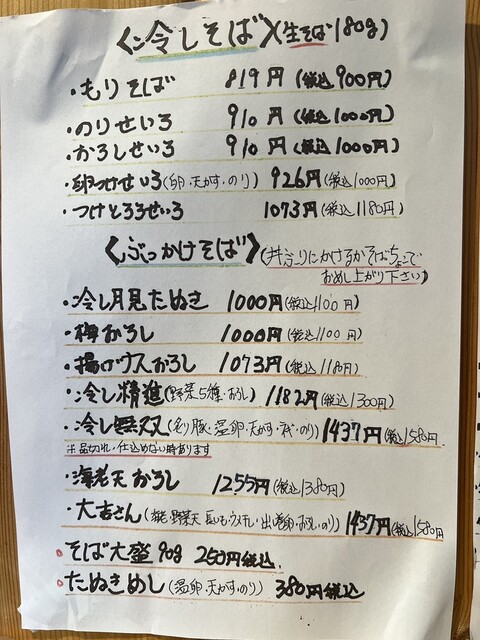 〈冷しそば〉(生そば180g)
・もりそば 819円(税込900円)
・のりせいろ 910円(税込1000円)
・おろしせいろ 910円(税込1000円)
・卵つけせいろ(卵・天かす・のり) 926円(税込1000円)
・つけとろろせいろ 1073円(税込1180円)
〈ぶっかけそば〉(丼ぶりにかけるかそばちょこで
お召し上がり下さい)
・冷し月見たぬき 1000円(税込1100円)
・梅おろし 1000円(税込1100円)
・揚げナスおろし 1073円(税込1180円)
・冷し精進(野菜5種・おろし) 1182円(税込1300円)
・冷し無双(炙り豚・温卵・天かす・ネギ・のり) 1437円(税込1580円
※品切れ・仕込めない時あります
・海老天おろし 1255円(税込1380円)
・大吉さん(海老・野菜天 ・のり) 1437円(税込1580円
・そば大盛90g 250円税込
・たぬきめし(温卵・天かす・のり) 380円税込